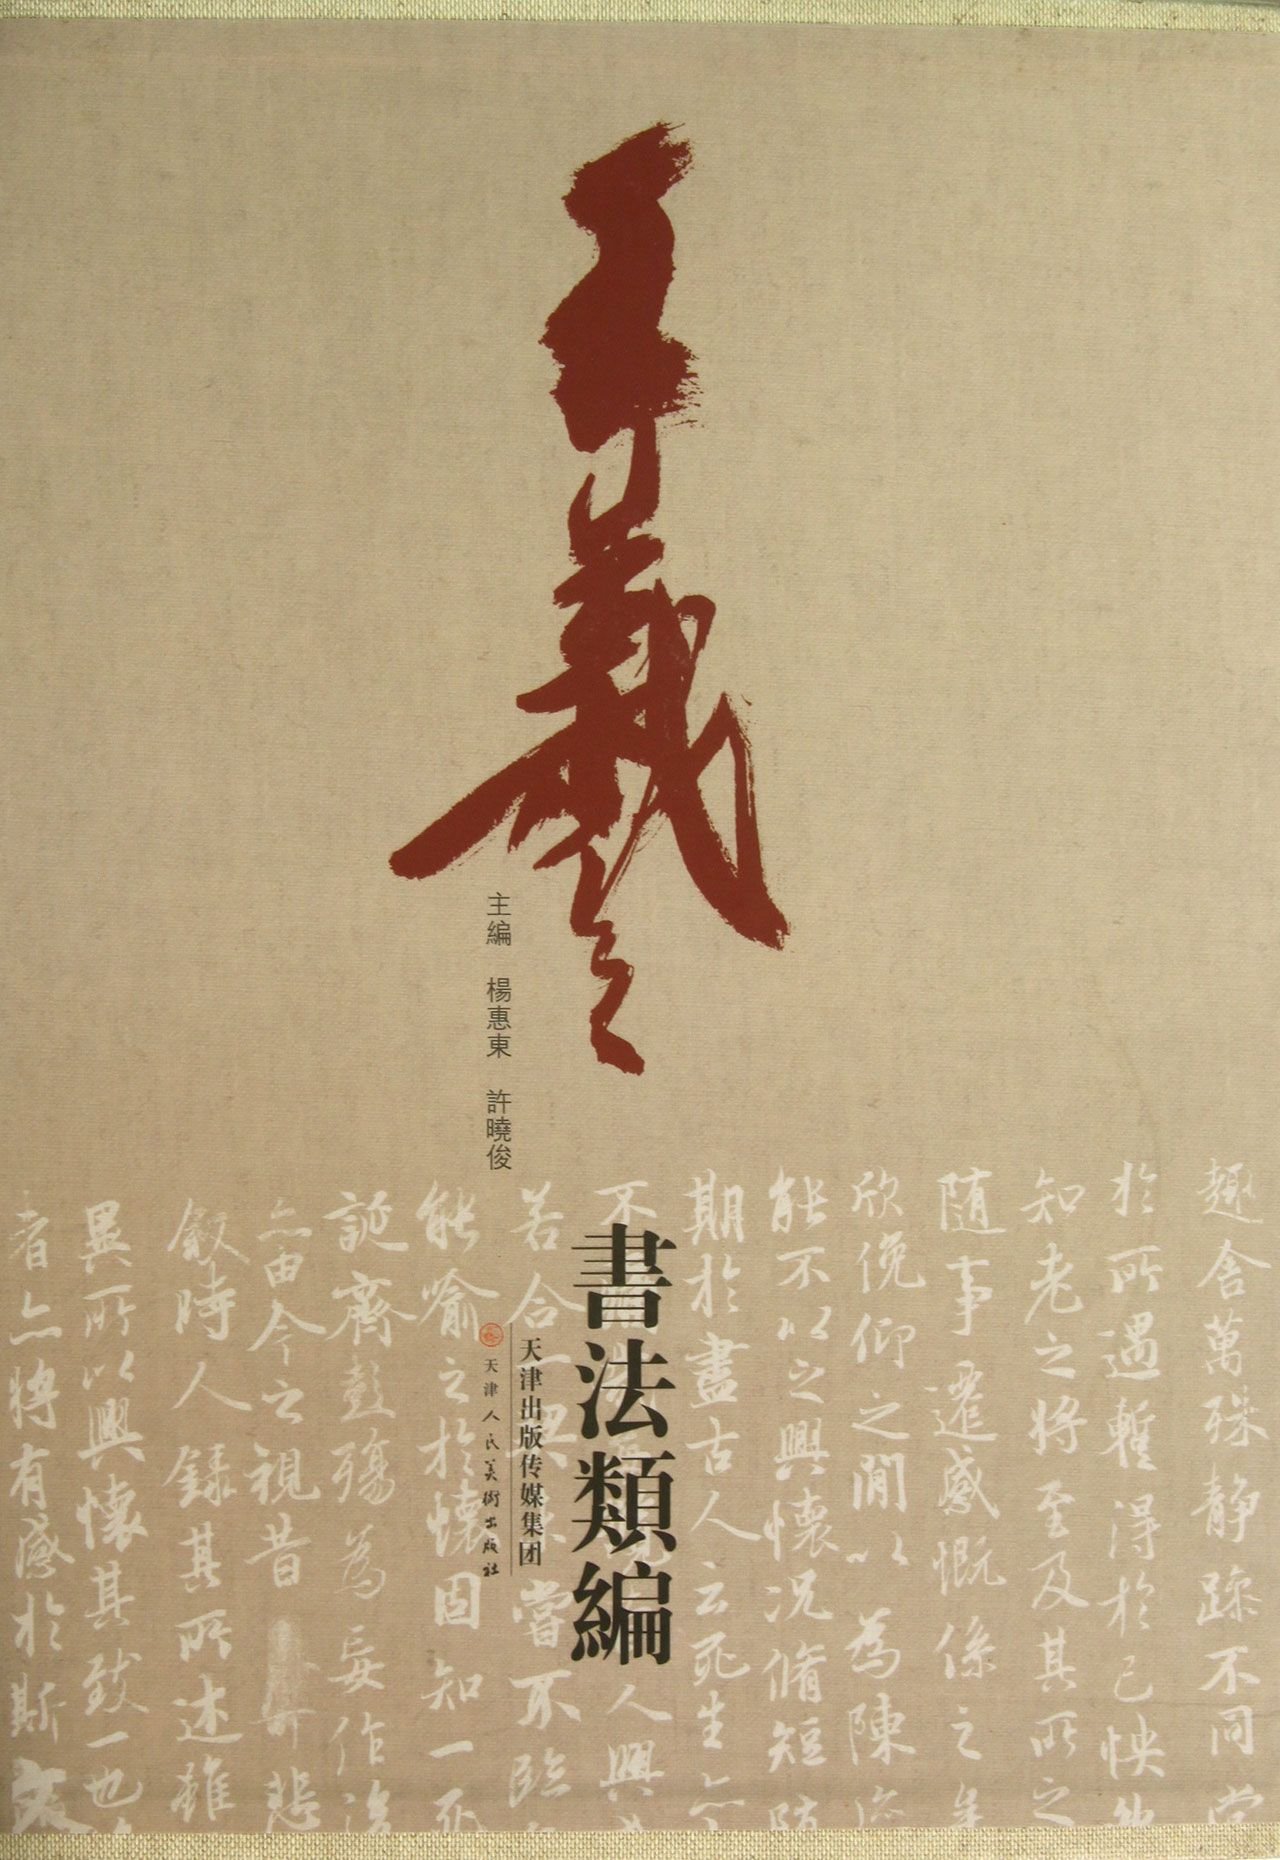 王羲之
主編 楊惠東 許曉俊
書法類編
天津出版传媒集团
天津人民美術出版社
趣舍萬殊静躁不同當
於所遇暫得於己怏然
知老之將至及其所之
隨事遷感慨係之矣
欣俛仰之間以為陳迹
能不以之興懷况脩短隨
期於盡古人云死生亦
不人興感
若合一契未嘗不臨
能喻之於懷固知一死
誕齊彭殤為妄作後
亦由今之視昔悲
敘時人録其所述雖
異所以興懷其致一也
者亦將有感於斯文